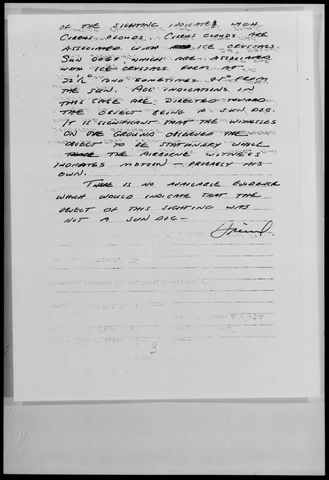 OF THE SIGHTING INDICATES HIGH
CIRRUS CLOUDS. CIRRUS CLOUDS ARE
ASSOCIATED WITH ICE CRYSTALS.
SUN DOGS WHICH ARE ASSOCIATED
WITH ICE CRYSTALS FORM AT
22 1/2° AND SOMETIMES 45° FROM
THE SUN. ALL INDICATIONS IN
THIS CASE ARE DIRECTED TOWARD
THE OBJECT BEING A SUN DOG.
IT IS SIGNIFICANT THAT THE WITNESSES
ON THE GROUND OBSERVED THE
OBJECT TO BE STATIONARY WHILE
THE AIRBORNE WITNESS
INDICATES MOTION — PROBABLY HIS
OWN.
THERE IS NO AVAILABLE EVIDENCE
WHICH WOULD INDICATE THAT THE
OBJECT OF THIS SIGHTING WAS
NOT A SUN DOG —
Friend